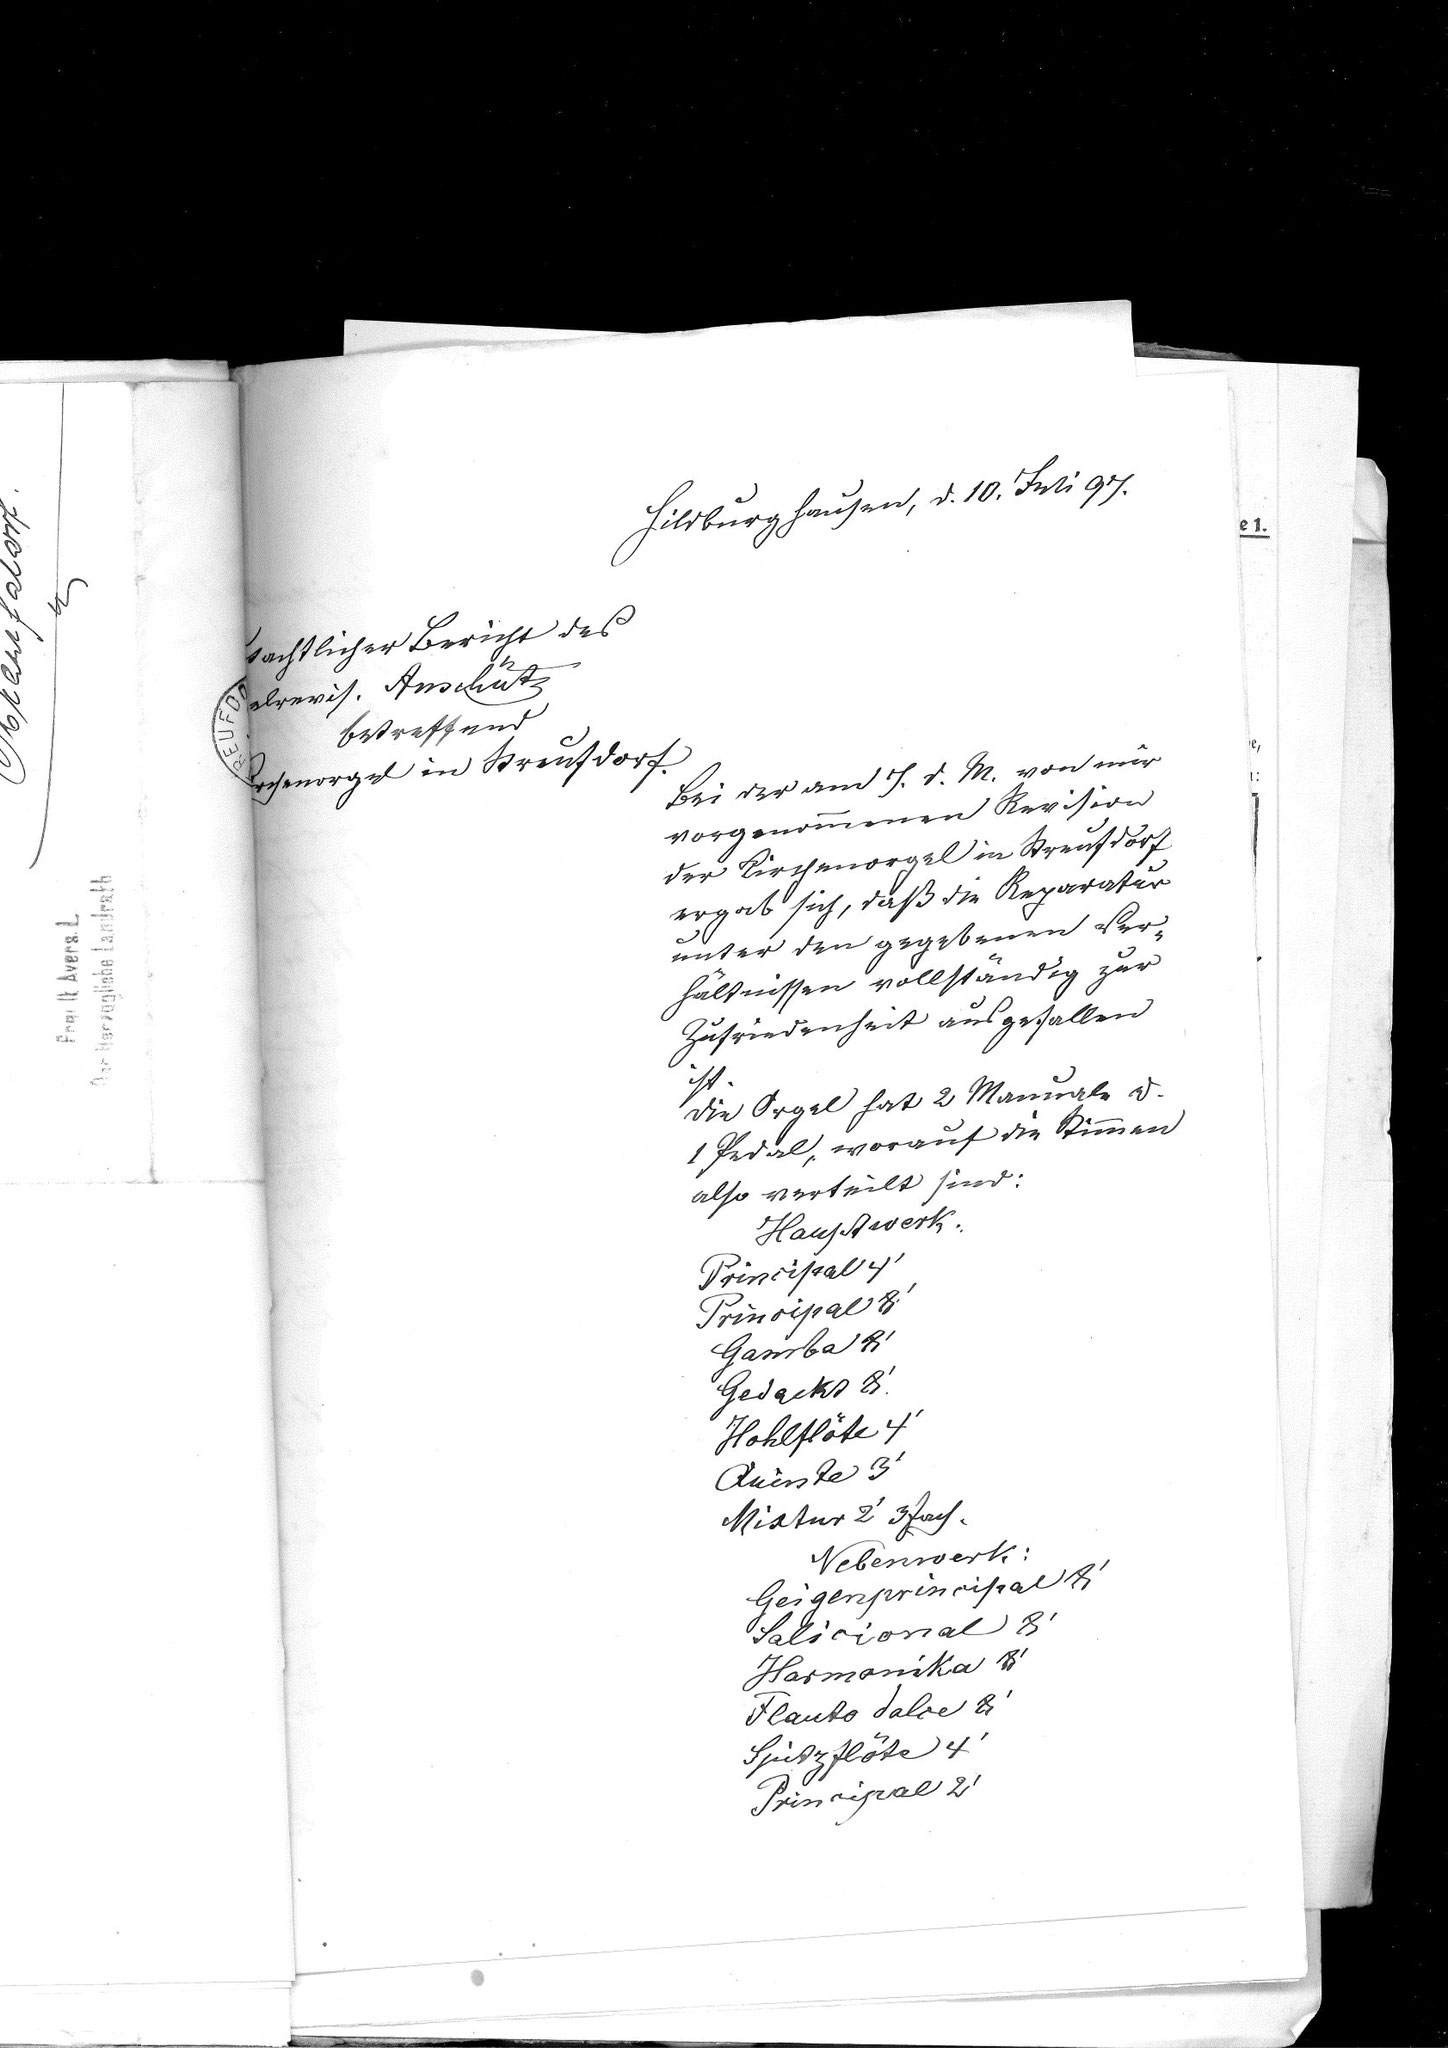 Hildburghausen, d. 10. Juli 97.
achtlicher Bericht des
elrevis. Anschütz
betreffend
rchenorgel in Streufdorf.
REUFDO
Bei der am 7. d. M. von mir
vorgenommenen Revision
der Kirchenorgel in Streufdorf
ergab sich, daß die Reparatur
unter den gegebenen Ver-
hältnissen vollständig zur
Zufriedenheit ausgefallen
ist.
Die Orgel hat 2 Manuale u.
1 Pedal, worauf die Stimmen
also verteilt sind:
Hauptwerk:
Principal 4'
Principal 8'
Gamba 8'
Gedackt 8'
Hohlflöte 4'
Quinte 3'
Mixtur 2' 3fach.
Nebenwerk:
Geigenprincipal 8'
Salicional 8'
Harmonika 8'
Flauto dolce 8'
Spitzflöte 4'
Principal 2'
Frei lt. Avers. L
Der Herzogliche Landrath
e 1.